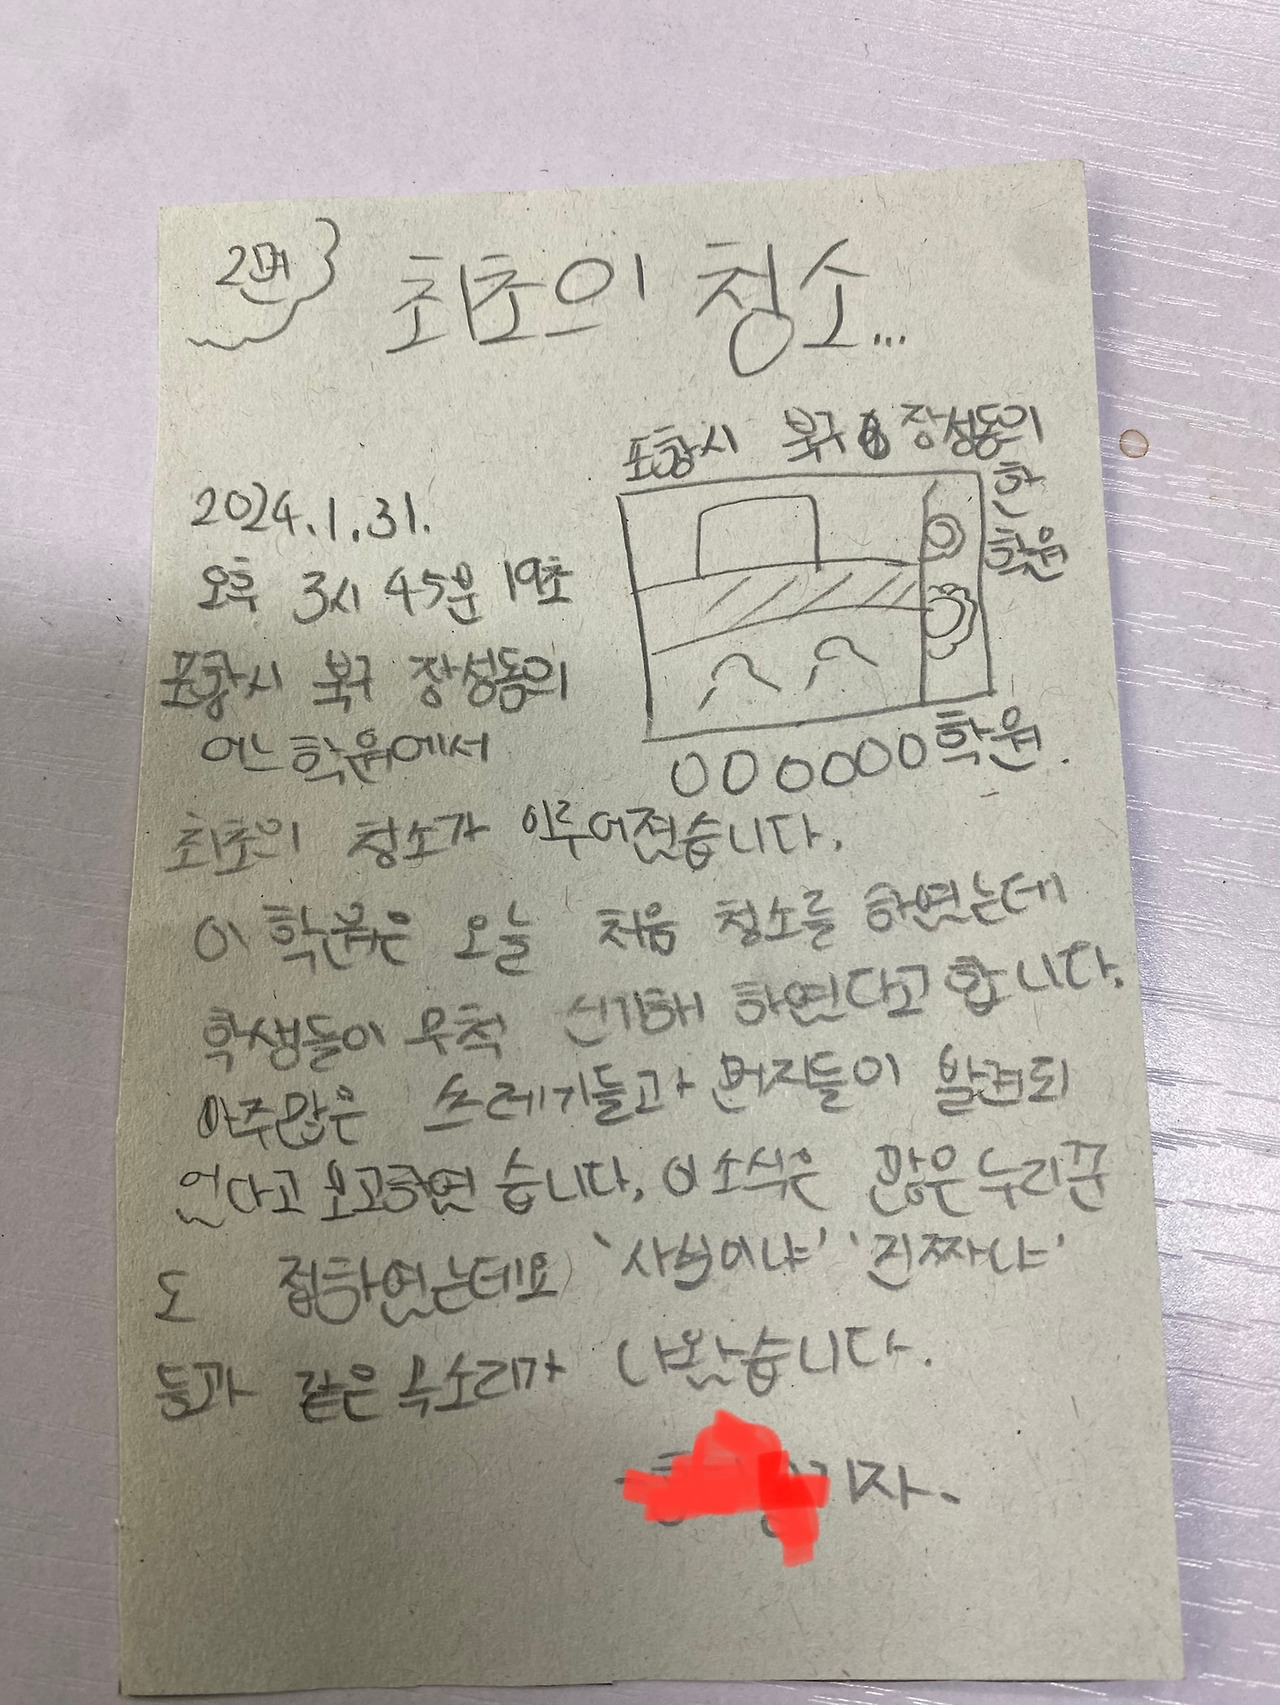 2면
최초의 청소...
포항시 북구 장성동의
한
학원
2024.1.31.
오후 3시 45분 19초
포항시 북구 장성동의
어느 학원에서
000000학원.
최초의 청소가 이루어졌습니다.
이 학원은 오늘 처음 청소를 하였는데
학생들이 무척 신기해 하였다고 합니다.
아주많은 쓰레기들과 먼지들이 발견되
었다고 보고하였습니다. 이 소식은 많은 누리꾼
도 접하였는데요 '사실이냐' '진짜냐'
등과 같은 목소리가 나왔습니다.
기자.